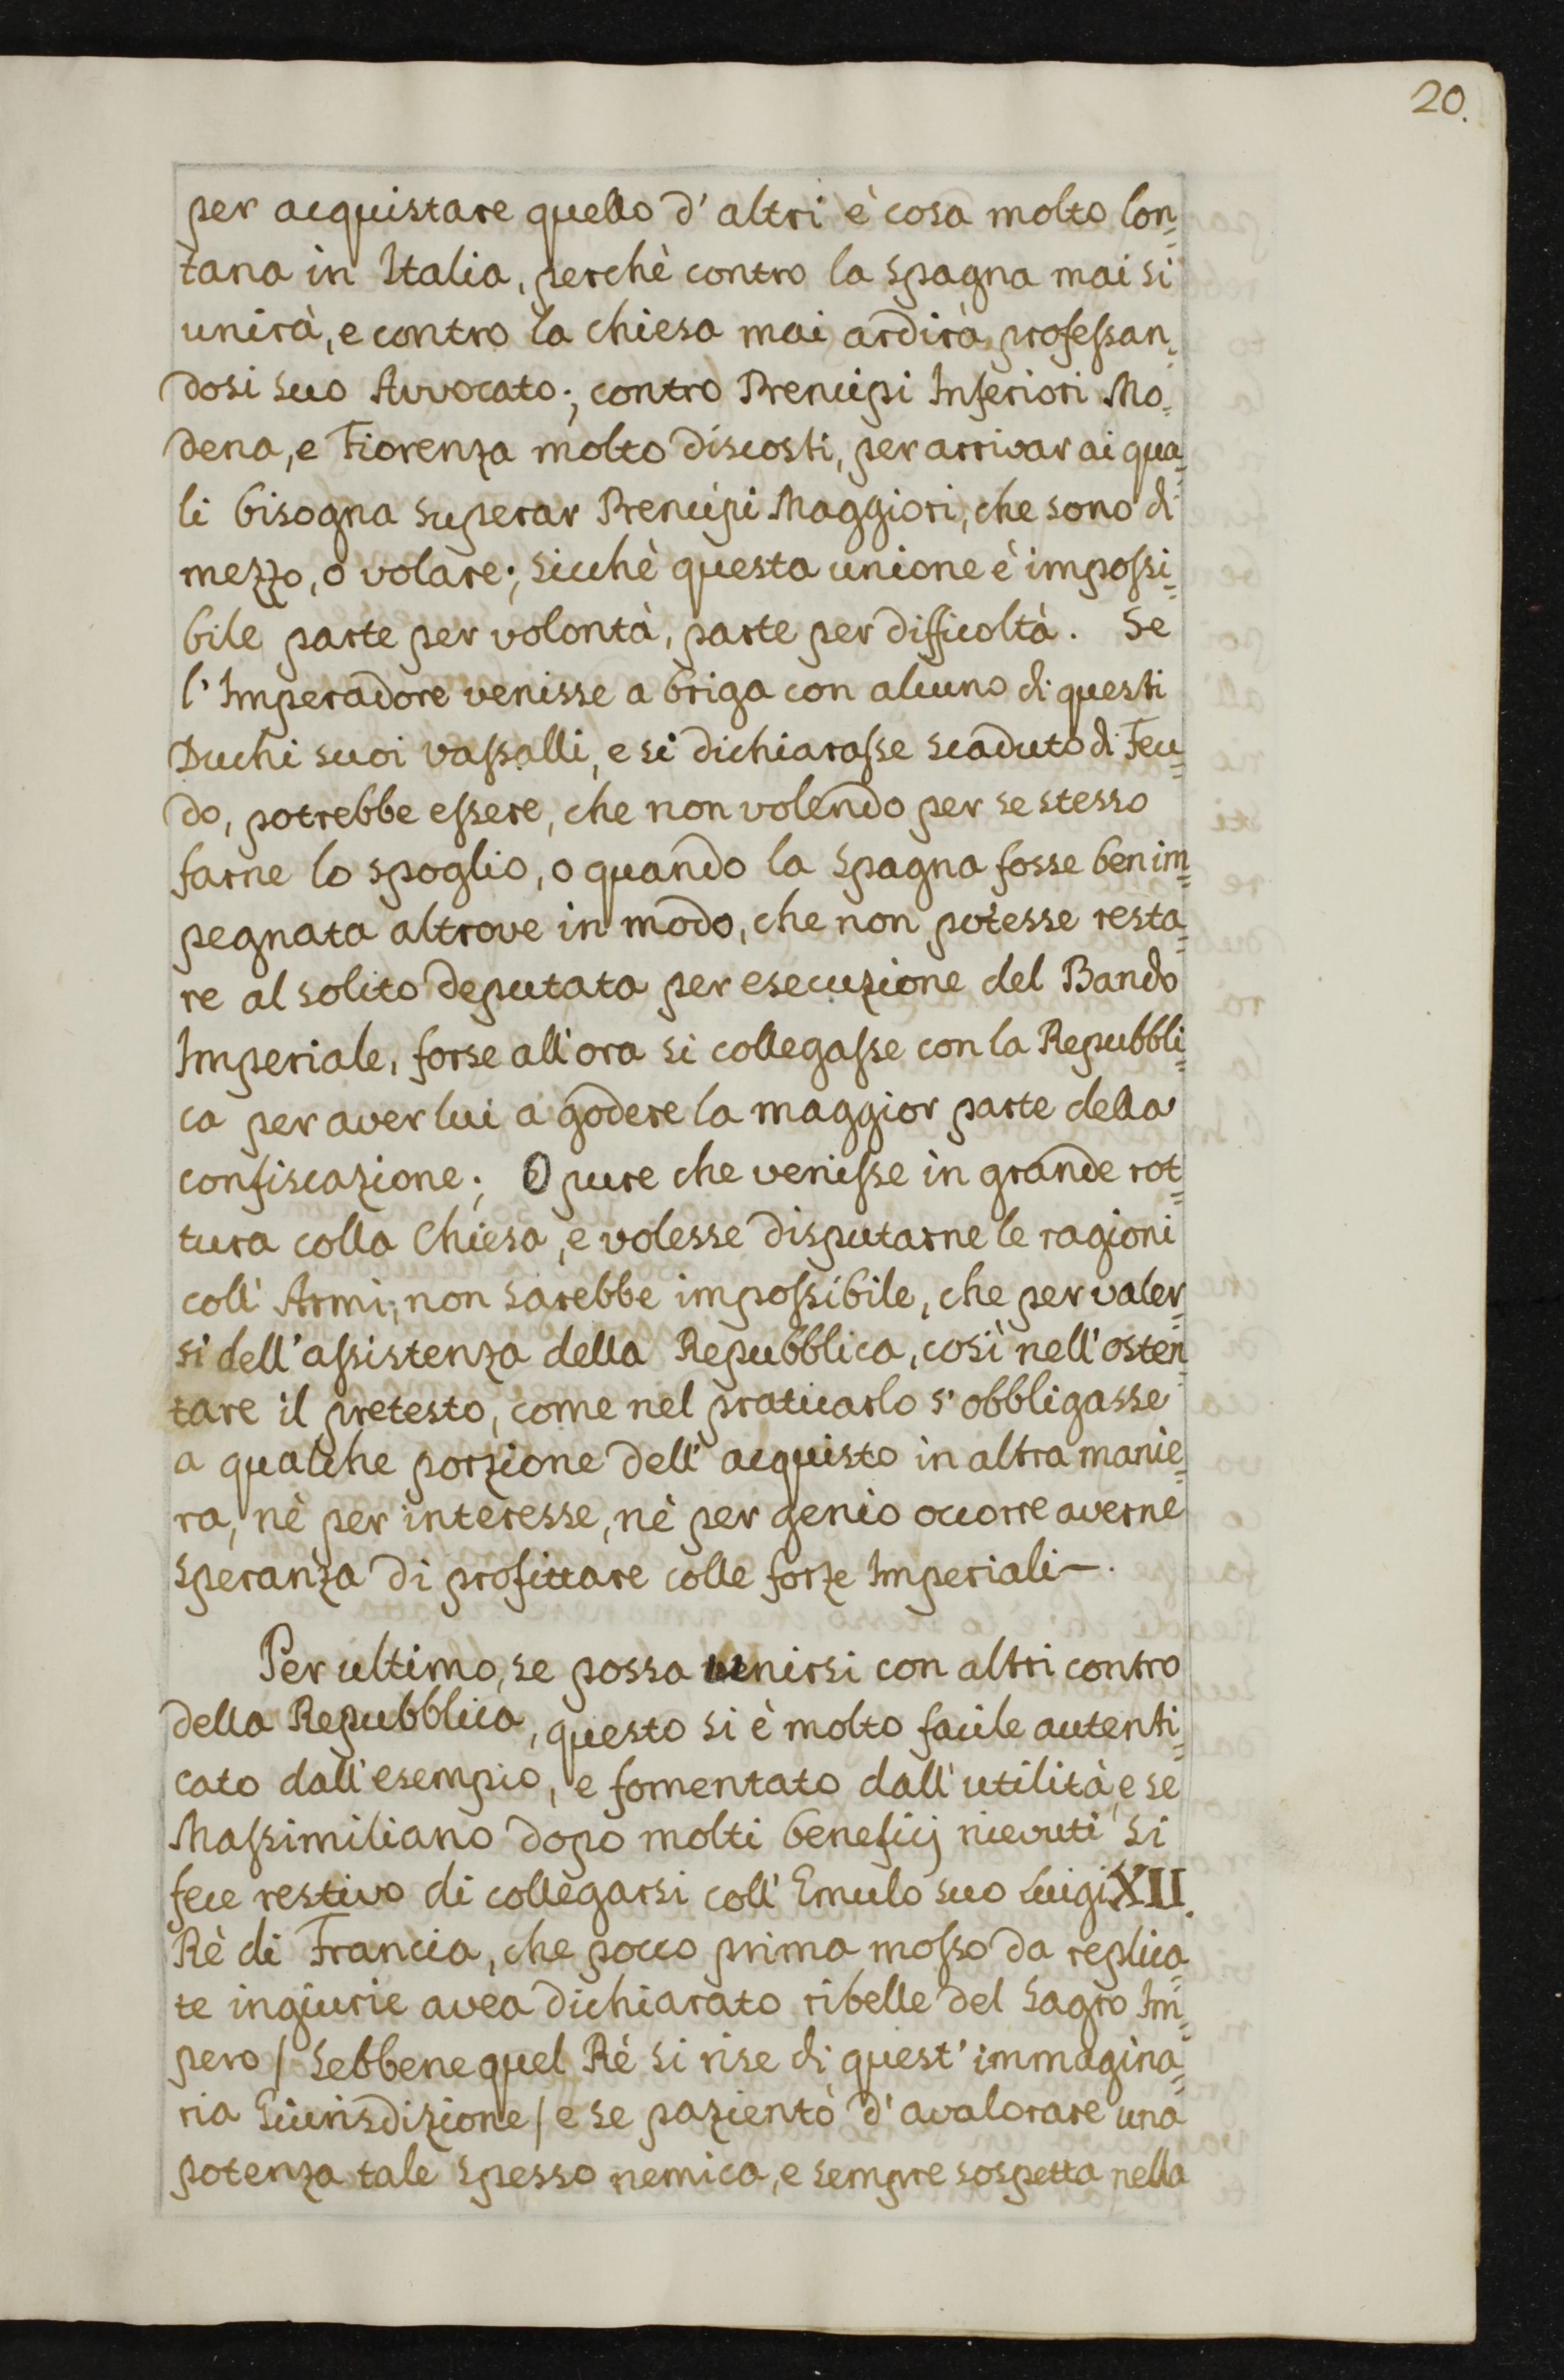 20.
per acquistare quello d'altri è cosa molto lon=
tana in Italia, perchè contro la Spagna mai si
unirà, e contro la Chiesa mai ardirà, professan=
dosi suo Avvocato; contro Prencipi Inferiori Mo=
dena, e Fiorenza molto discosti, per arrivar ai qua=
li bisogna superar Prencipi Maggiori, che sono di
mezzo, o volare; sicchè questa unione è impossi=
bile parte per volontà, parte per difficoltà. Se
l'Imperadore venisse a briga con alcuno di questi
Duchi suoi vassalli, e si dichiarasse scaduto di Feu=
do, potrebbe essere, che non volendo per se stesso
farne lo spoglio, o quando la Spagna fosse ben im=
pegnata altrove in modo, che non potesse resta=
re al solito deputata per esecuzione del Bando
Imperiale, forse all'ora si collegasse con la Repubbli=
ca per aver lui a godere la maggior parte della
confiscazione; O pure che venisse in grande rot=
tura colla Chiesa, e volesse disputarne le ragioni
coll'Armi, non sarebbe impossibile, che per valer=
si dell'assistenza della Repubblica, così nell'osten=
tare il pretesto, come nel praticarlo s'obbligasse
a qualche porzione dell'acquisto in altra manie=
ra, nè per interesse, nè per genio occorre averne
speranza di profittare colle forze Imperiali.
Per ultimo, se possa unirsi con altri contro
della Repubblica, questo si è molto facile autenti=
cato dall'esempio, e fomentato dall'utilità, e se
Massimiliano dopo molti beneficij ricevuti si
fece restivo di collegarsi coll'Emulo suo Luigi XII.
Rè di Francia, che poco prima mosso da replica=
te ingiurie avea dichiarato ribelle del Sagro Im=
pero / Sebbene quel Rè si rise di quest'immagina=
ria Giurisdizione / e se pazientò d'avalorare una
potenza tale spesso nemica, e sempre sospetta nella